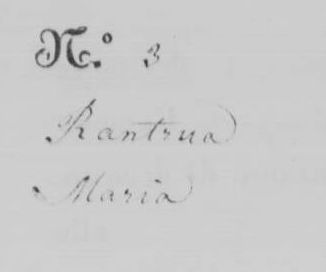 N.º 3
Rantrua
Maria